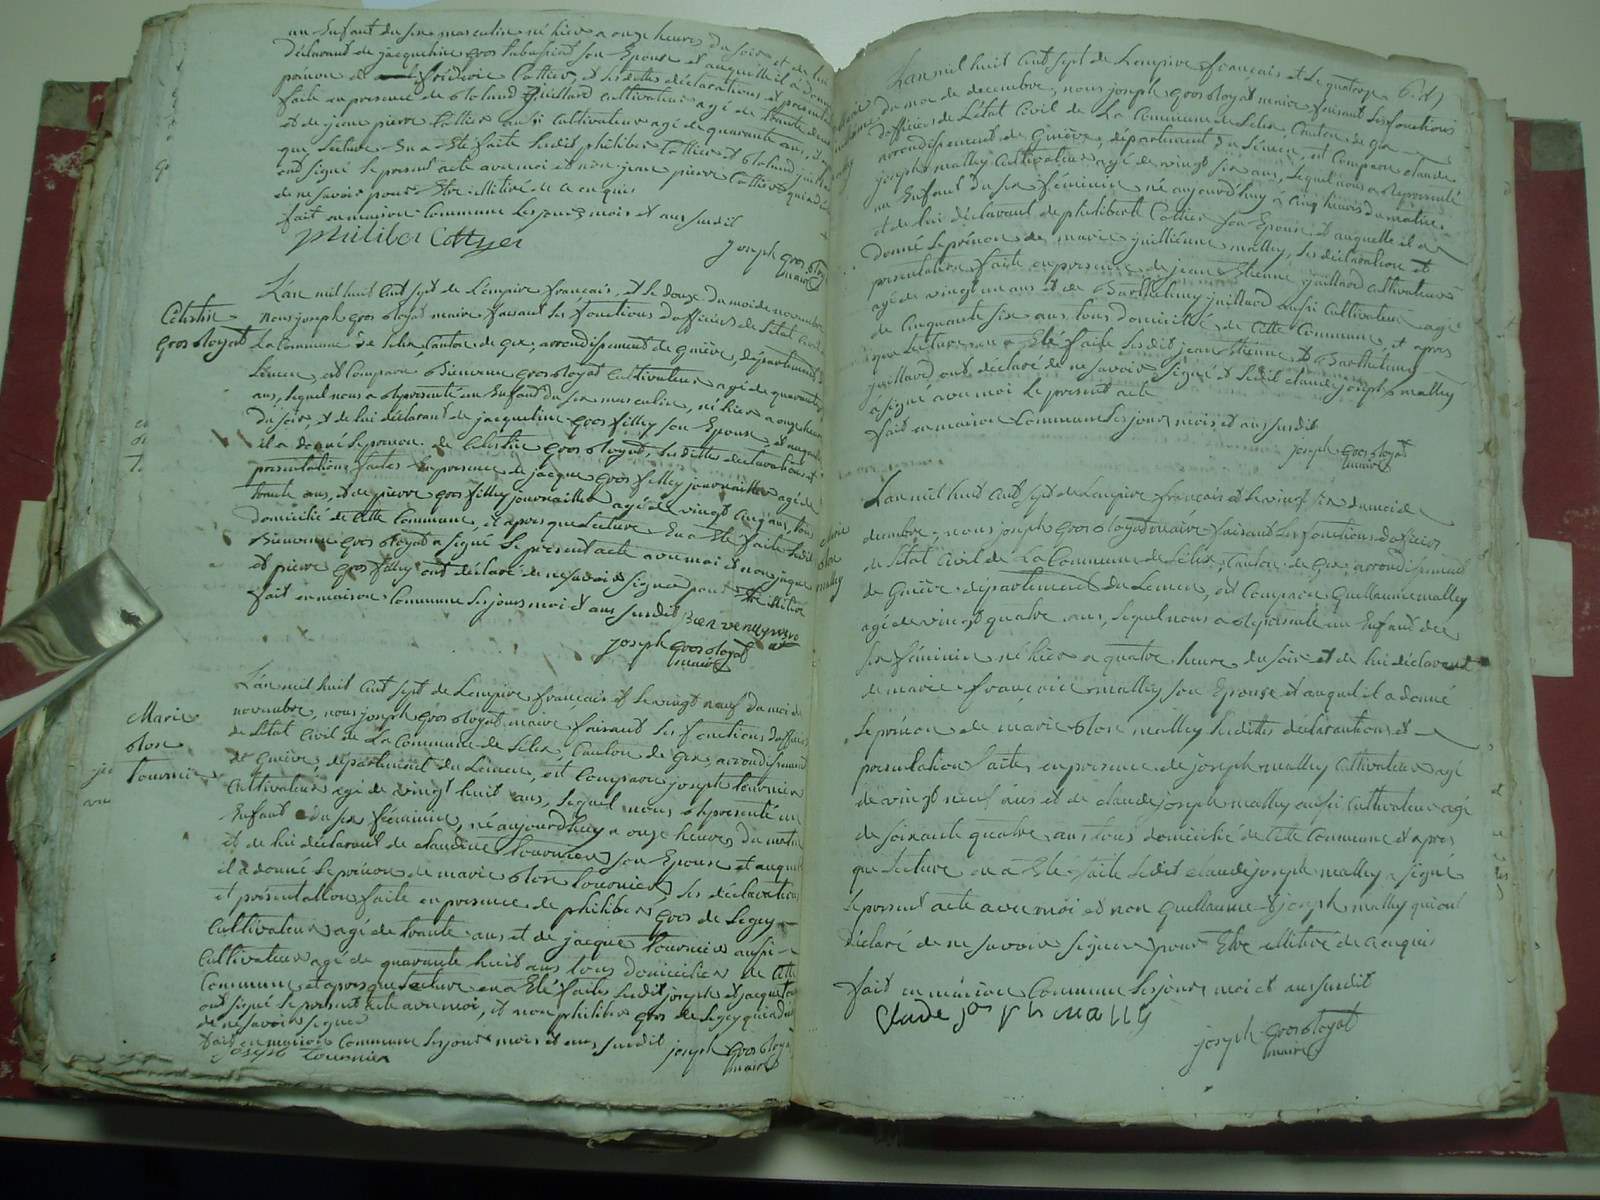 un Enfant du sex masculin né hier a onze heures du soir et de lui
déclarant de jacqueline gros sabussiat son Epouse et auquelle il a donné
prénon de fréderic Cottier, et lesdittes déclarations et presentation
faite en présence de Roland juillard cultivateur agé de trente
et de jean pierre Cottier aussi cultivateur agé de quarante ans, et
que lecture en a Eté faite ledit philiber Cottier et Roland juillard
ont signé le présent acte avec moi et non jean pierre Cottier qui a dé
de ne savoir pour Etre illitiré de ce enquis
fait en maison Commune les jour mois et ans susdit
philiber Cottyer
joseph gros Royat
maire
Célestin
gros Royat
L'an mil huit cent sept de L'empire français, et le douze du moi de novembre
nous joseph gros Royat maire faisant les fonctions d'officier de L'état Civil de
La Commune de Lelex, Canton de gex, arrondissement de genève, département du
Léman, est Comparu Bienvenu gros Royat Cultivateur agé de quarante
ans, lequel nous a Représenté un Enfant du sex masculin, né hier a onze heures
du soir, et de lui déclarant de jacqueline gros filley son Epouse, et auquelle
il a donné le prénon de Célestin gros Royat, lesdittes déclarations et
présentations faites En présence de jacque gros filley journaillier agé de
trente ans, et de pierre gros filley journaillier agé de vingt cinq ans, tous
domicilié de Cette Commune, et après que lecture En a Eté faite ledit
Bienvenu gros Royat a signé le présent acte avec moi et non jaque
et pierre gros filley ont déclaré de ne savoir signer pour Etre illitiré
fait en maison Commune les jours moi et ans susdit
joseph gros Royat
maire
Marie
Rose
Tournier
L'an mil huit cent sept de L'empire français et le vingt neuf du moi de
novembre, nous joseph gros Royat maire faisant les fonctions d'officier
de L'état Civil de La Commune de Lelex, Canton de gex, arrondissement
de genève, département du Léman, est Comparu joseph Tournier
Cultivateur agé de vingt huit ans, lequel nous a Représenté un
Enfant du sex féminin, né aujourd'huy a onze heures du matin
et de lui déclarant de claudine Tournier son Epouse et auquel
il a donné le prénon de marie Rose Tournier, les déclarations
et présentation faite en présence de philiber gros de Légey
Cultivateur agé de trente ans et de jacque Tournier aussi
Cultivateur agé de quarante huit ans tous domicilier de Cette
Commune, et après que lecture en a Eté faites ledit joseph et jacque
ont signé le présent acte avec moi, et non philiber gros de Légey qui a dé
de ne savoir signer
fait en maison Commune les jours mois et ans susdit
joseph Tournier
joseph gros Royat
maire
L'an mil huit cent sept de L'empire français et le quatorze
du moi de decembre, nous joseph gros Royat maire faisant les fonctions
d'officier de L'état Civil de La Commune de Lelex, Canton de gex
arrondissement de Genève, département du Léman, est Comparu claude
joseph malley Cultivateur agé de vingt six ans, lequel nous a Représenté
un Enfant du sex féminin né aujourd'huy a cinq heures du matin
et de lui déclarant de philiberte Cottier son Epouse, et auquelle il a
donné le prénon de marie juillienne malley, les déclaration et
présentation faite en présence de jean Etienne juillard cultivateur
agé de vingt un ans et de Barthelemy juillard aussi Cultivateur agé
de Cinquante six ans, tous domicilliés de Cette Commune, et après
que Lecture en a Eté faite lesdit jean Etienne et Barthelemy
juillard ont déclaré de ne savoir signé et ledit claude joseph malley
a signé avec moi le présent acte
fait en maison Commune les jours mois et ans susdit
joseph gros Royat
maire
Marie
Rose
malley
L'an mil huit cent sept de L'empire français et le vingt six du moi de
decembre, nous joseph gros Royat maire faisant les fonctions d'officier
de L'état Civil de La Commune de Lelex, Canton de gex, arrondissement
de Genève département du Léman, est Comparu Guellaume malley
agé de vingt quatre ans, lequel nous a Représenté un Enfant du
sex féminin né hier a quatre heure du soir et de lui déclarant
de marie françoise malley son Epouse et auquel il a donné
le prénon de marie Rose malley lesdittes déclarations et
présentation faites en présence de joseph malley Cultivateur agé
de vingt neuf ans et de claude joseph malley aussi Cultivateur agé
de soixante quatre ans tous domicilié de Cette Commune et après
que Lecture en a Eté faite ledit claude joseph malley a signé
le présent acte avec moi et non Guellaume et joseph malley qui ont
déclaré de ne savoir signer pour Etre illitiré de ce enquis
fait en maison Commune les jours moi et ans susdit
Clade joseph mally
joseph gros Royat
maire